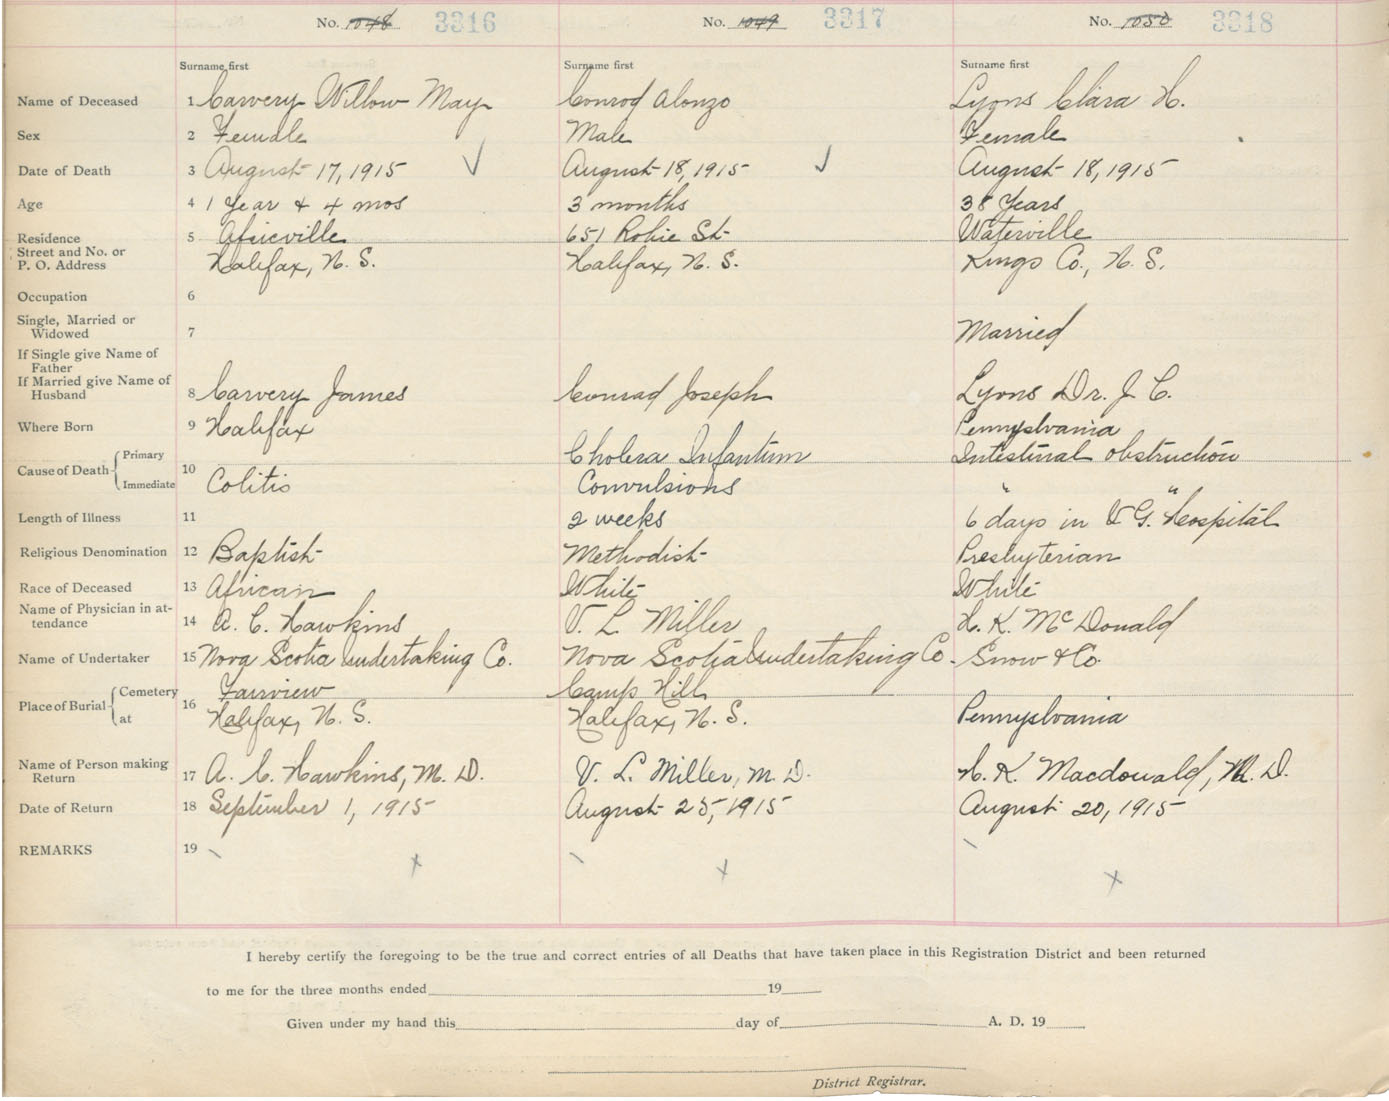 No. 1048 3316 No. 1049 3317 No. 1050 3318
Surname first Surname first Surname first
Name of Deceased 1 Carvery Willow May Conrod Alonzo Lyons Clara H.
Sex 2 Female Male Female
Date of Death 3 August 17, 1915 August 18, 1915 August 18, 1915
Age 4 1 Year & 4 mos 3 months 38 Years
Residence 5 Africville 651 Robie St Waterville
Street and No. or
P. O. Address Halifax, N. S. Halifax, N. S. Kings Co., N. S.
Occupation 6
Single, Married or
Widowed 7 Married
If Single give Name of
Father
If Married give Name of
Husband 8 Carvery James Conrad Joseph Lyons Dr. J. C.
Where Born 9 Halifax Pennyslvania
Cause of Death Primary 10 Cholera Infantum Intestinal obstruction
Immediate Colitis Convulsions " "
Length of Illness 11 2 weeks 6 days in V. G. Hospital
Religious Denomination 12 Baptist Methodist Presbyterian
Race of Deceased 13 African White White
Name of Physician in at-
tendance 14 A. C. Hawkins V. L. Miller H. K. McDonald
Name of Undertaker 15 Nova Scotia Undertaking Co. Nova Scotia Undertaking Co. Snow & Co.
Place of Burial Cemetery 16 Fairview Camp Hill
at Halifax, N. S. Halifax, N. S. Pennyslvania
Name of Person making
Return 17 A. C. Hawkins, M. D. V. L. Miller, M. D. H. K. Macdonald, M. D.
Date of Return 18 September 1, 1915 August 25, 1915 August 20, 1915
REMARKS 19
I hereby certify the foregoing to be the true and correct entries of all Deaths that have taken place in this Registration District and been returned
to me for the three months ended 19
Given under my hand this day of A. D. 19
District Registrar.